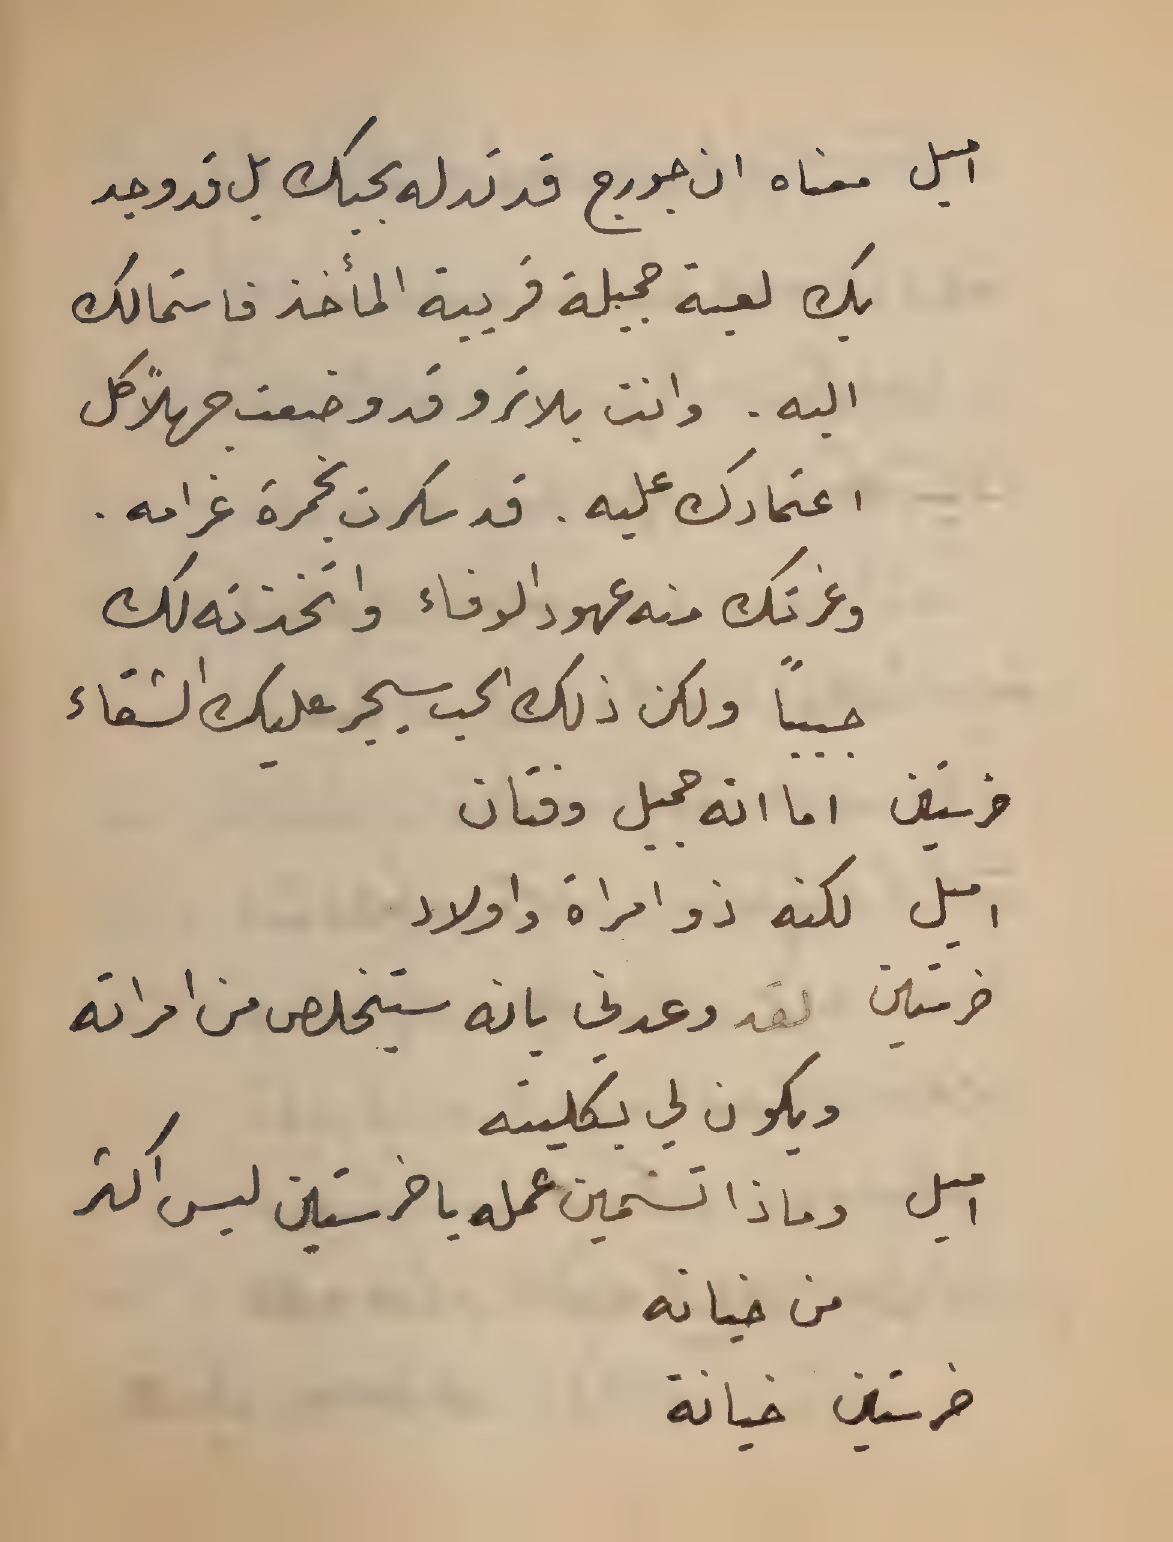 اميل معناه ان جورج قد تدله بحبك بل قد وجد
بك لعبة جميلة قريبة المأخذ فاستمالك
اليه . وانت بلا ترو قد وضعت جهلاً كل
اعتمادك عليه . قد سكرت بخمرة غرامه .
وغرتك منه عهود الوفاء واتخذته لك
حبيباً ولكن ذلك الحب سيجر عليك الشقاء
خرستين اما انه جميل وفتان
اميل لكنه ذو امراة واولاد
خرستين لقد وعدني بانه ستيخلص من امراته
ويكون لي بكليته
اميل وماذا تسمين عمله يا خرستين ليس اكثر
من خيانه
خرستين خيانة